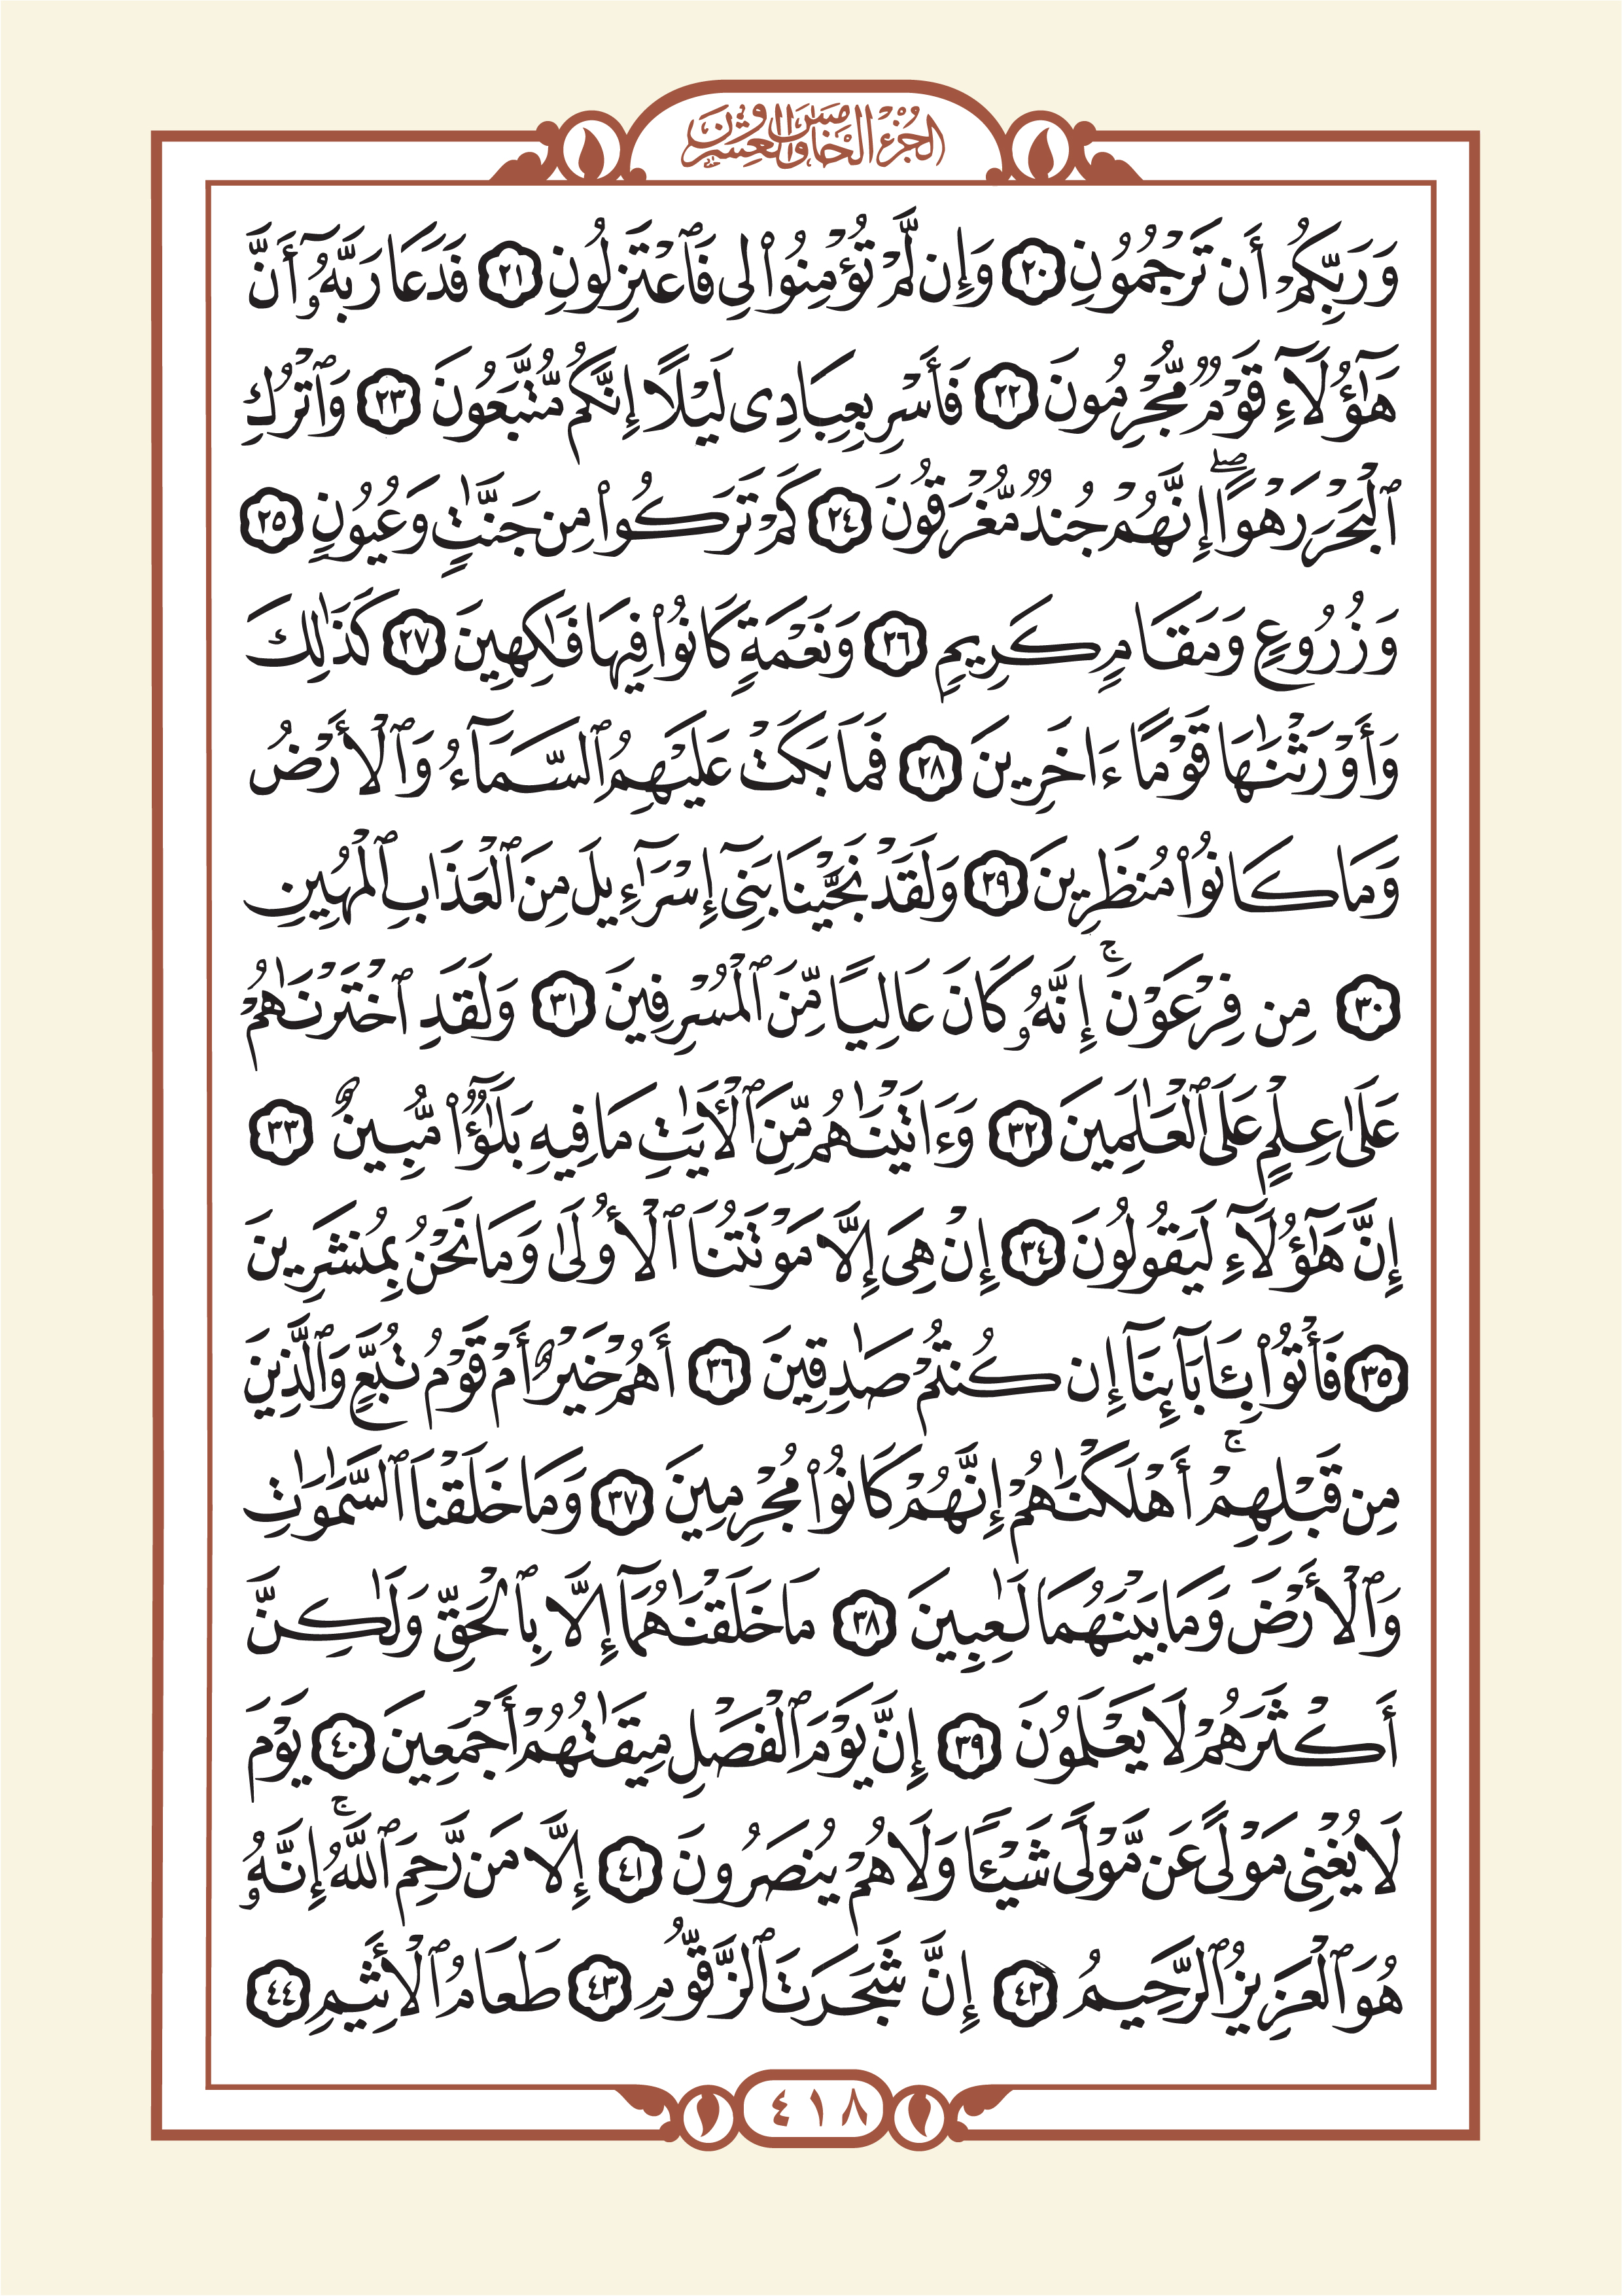 الجزء الخامس والعشرون
وَرَبِّكُمْ أَن تَرْجُمُونِ ٢٠ وَإِن لَّمْ تُؤْمِنُوا۟ لِى فَٱعْتَزِلُونِ ٢١ فَدَعَا رَبَّهُۥٓ أَنَّ
هَٰٓؤُلَآءِ قَوْمٌ مُّجْرِمُونَ ٢٢ فَأَسْرِ بِعِبَادِى لَيْلًا إِنَّكُم مُّتَّبَعُونَ ٢٣ وَٱتْرُكِ
ٱلْبَحْرَ رَهْوًا ۖ إِنَّهُمْ جُندٌ مُّغْرَقُونَ ٢٤ كَمْ تَرَكُوا۟ مِن جَنَّٰتٍ وَعُيُونٍ ٢٥
وَزُرُوعٍ وَمَقَامٍ كَرِيمٍ ٢٦ وَنَعْمَةٍ كَانُوا۟ فِيهَا فَٰكِهِينَ ٢٧ كَذَٰلِكَ
وَأَوْرَثْنَٰهَا قَوْمًا ءَاخَرِينَ ٢٨ فَمَا بَكَتْ عَلَيْهِمُ ٱلسَّمَآءُ وَٱلْأَرْضُ
وَمَا كَانُوا۟ مُنظَرِينَ ٢٩ وَلَقَدْ نَجَّيْنَا بَنِىٓ إِسْرَٰٓءِيلَ مِنَ ٱلْعَذَابِ ٱلْمُهِينِ
٣٠ مِن فِرْعَوْنَ ۚ إِنَّهُۥ كَانَ عَالِيًا مِّنَ ٱلْمُسْرِفِينَ ٣١ وَلَقَدِ ٱخْتَرْنَٰهُمْ
عَلَىٰ عِلْمٍ عَلَى ٱلْعَٰلَمِينَ ٣٢ وَءَاتَيْنَٰهُم مِّنَ ٱلْءَايَٰتِ مَا فِيهِ بَلَٰٓؤٌا۟ مُّبِينٌ ٣٣
إِنَّ هَٰٓؤُلَآءِ لَيَقُولُونَ ٣٤ إِنْ هِىَ إِلَّا مَوْتَتُنَا ٱلْأُولَىٰ وَمَا نَحْنُ بِمُنشَرِينَ
٣٥ فَأْتُوا۟ بِـَٔابَآئِنَآ إِن كُنتُمْ صَٰدِقِينَ ٣٦ أَهُمْ خَيْرٌ أَمْ قَوْمُ تُبَّعٍ وَٱلَّذِينَ
مِن قَبْلِهِمْ ۚ أَهْلَكْنَٰهُمْ إِنَّهُمْ كَانُوا۟ مُجْرِمِينَ ٣٧ وَمَا خَلَقْنَا ٱلسَّمَٰوَٰتِ
وَٱلْأَرْضَ وَمَا بَيْنَهُمَا لَٰعِبِينَ ٣٨ مَا خَلَقْنَٰهُمَآ إِلَّا بِٱلْحَقِّ وَلَٰكِنَّ
أَكْثَرَهُمْ لَا يَعْلَمُونَ ٣٩ إِنَّ يَوْمَ ٱلْفَصْلِ مِيقَٰتُهُمْ أَجْمَعِينَ ٤٠ يَوْمَ
لَا يُغْنِى مَوْلًى عَن مَّوْلًى شَيْـًٔا وَلَا هُمْ يُنصَرُونَ ٤١ إِلَّا مَن رَّحِمَ ٱللَّهُ ۚ إِنَّهُۥ
هُوَ ٱلْعَزِيزُ ٱلرَّحِيمُ ٤٢ إِنَّ شَجَرَتَ ٱلزَّقُّومِ ٤٣ طَعَامُ ٱلْأَثِيمِ ٤٤
٤١٨